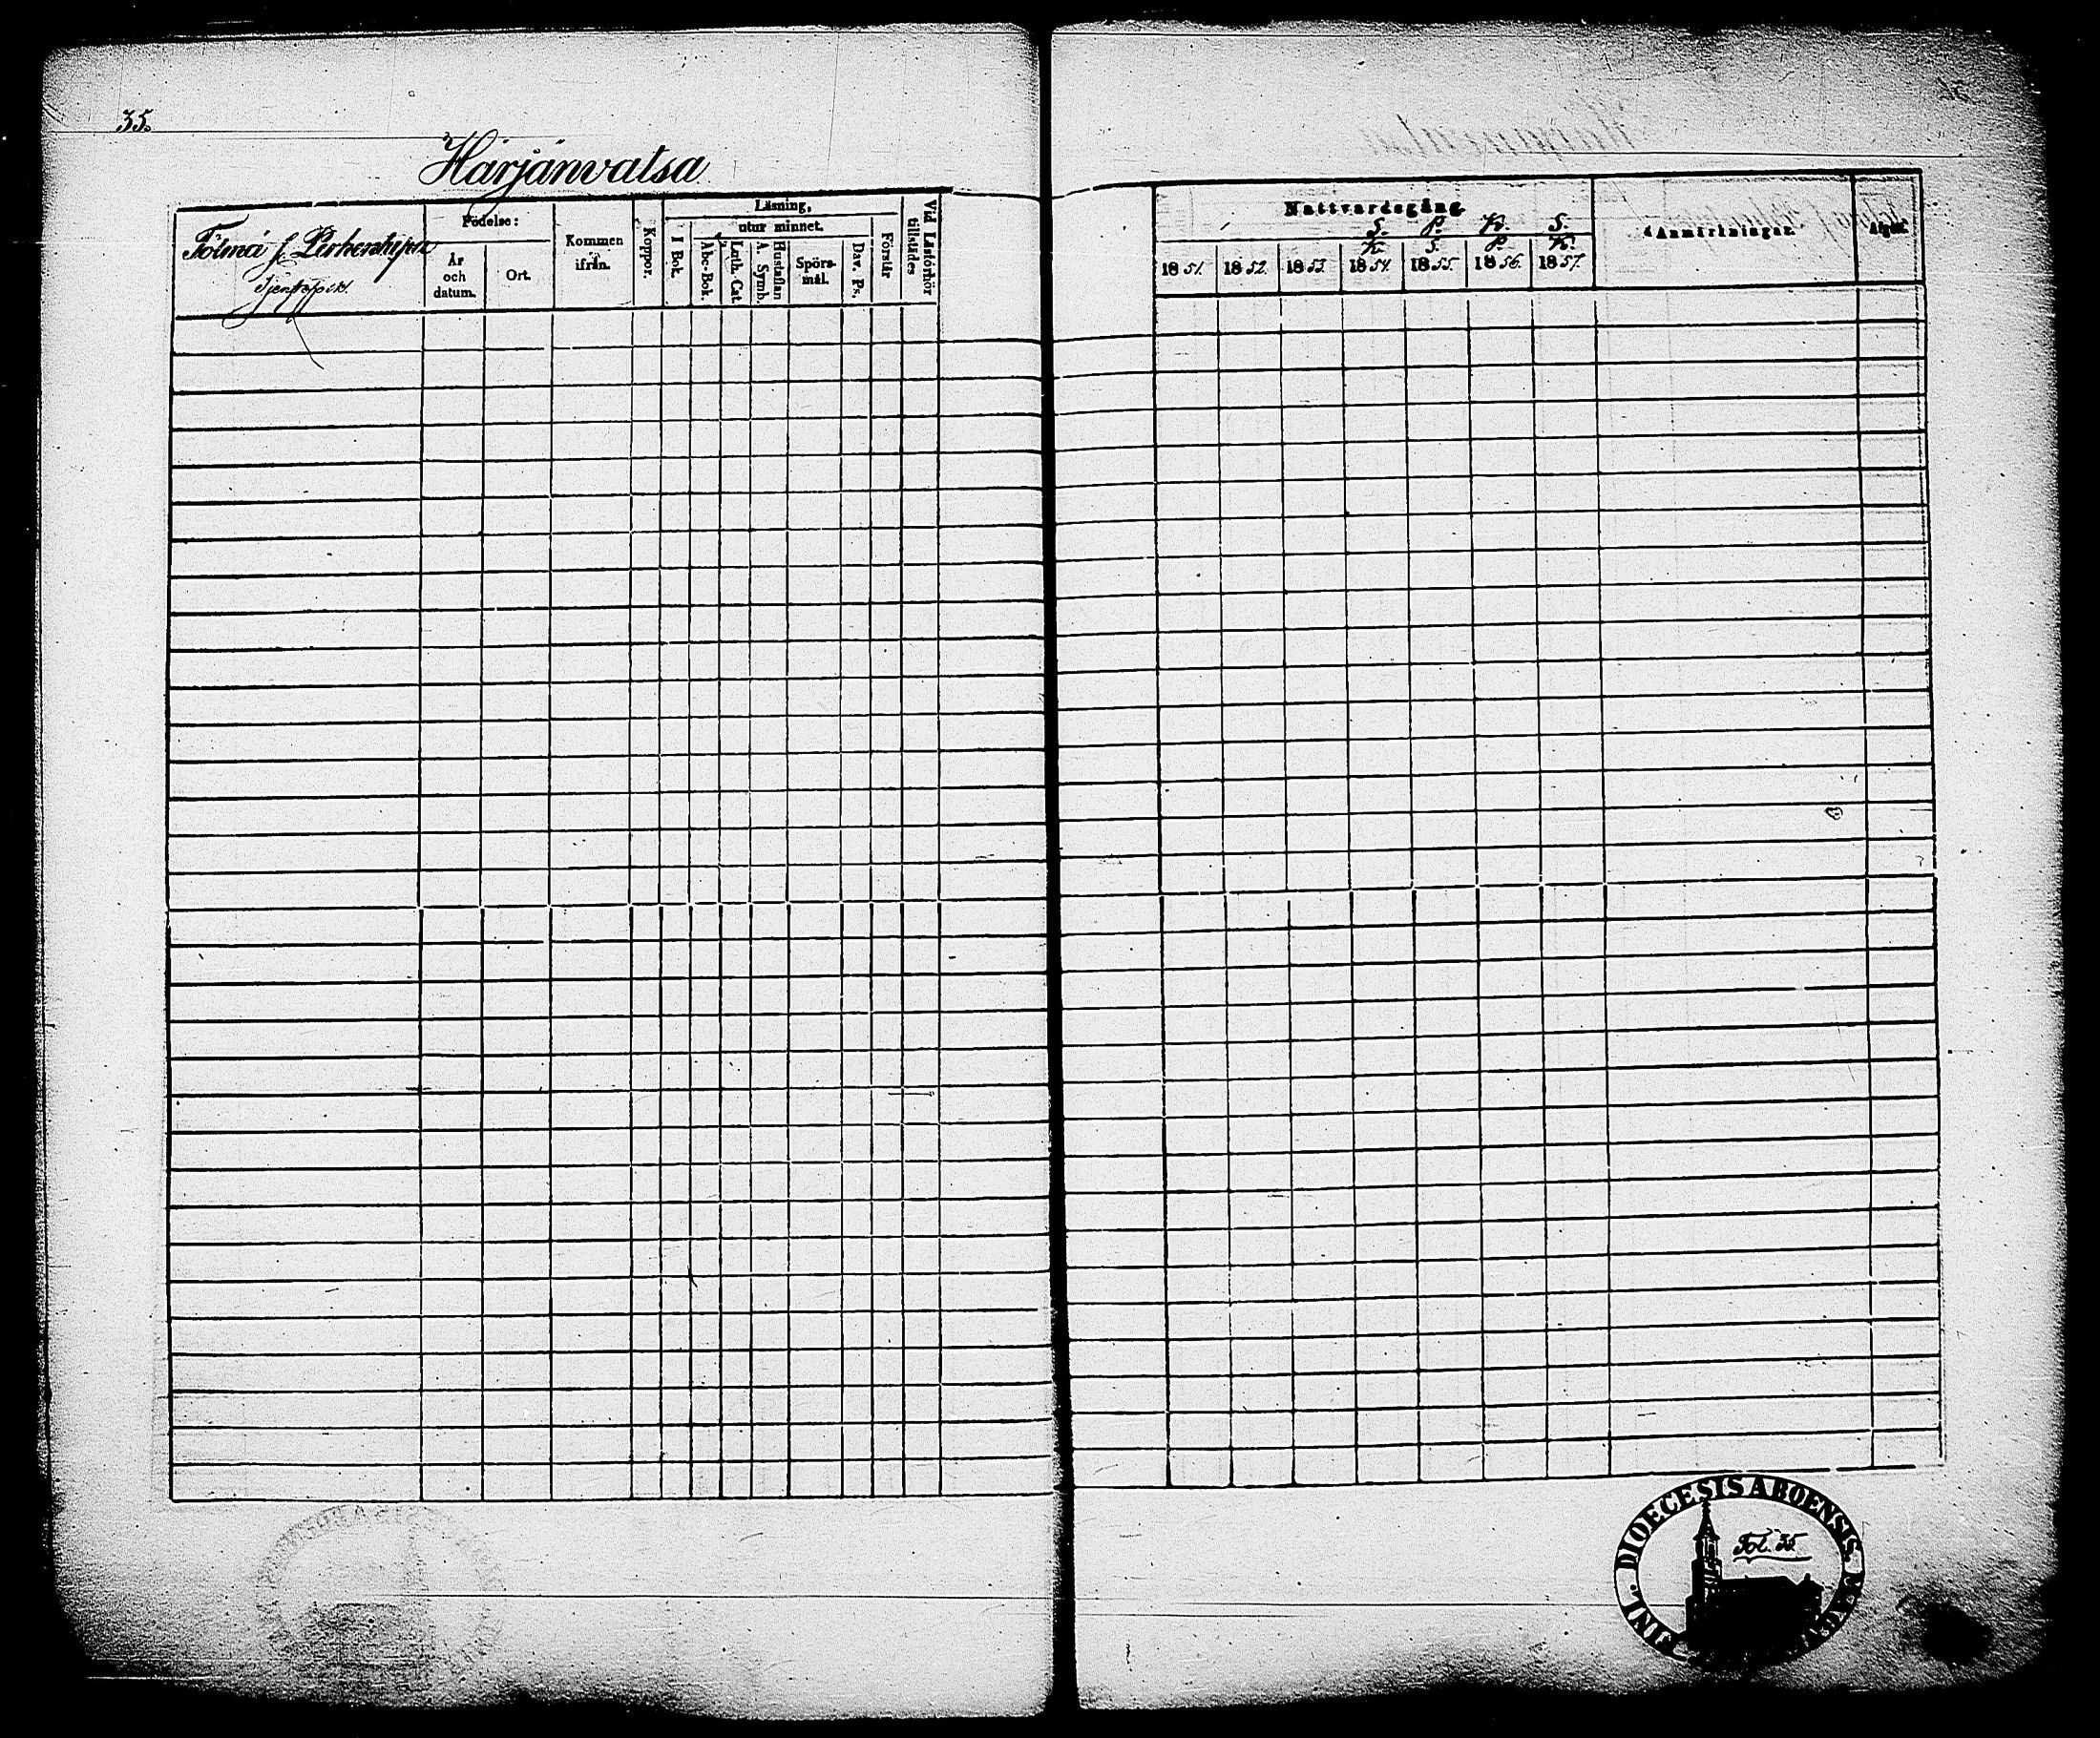 35.
Härjänvatsa
Födelse:
År och datum.
Ort.
Kommen ifrån.
Koppor.
Läsning,
utur minnet.
I Bok.
Abc-Bok.
Luth. Cat.
A. Symb.
Hustaflan
Spörsmål.
Dav. Ps.
Förstår
Vid Läsförhör tillstädes
Nattvardsgång
S. P. K. S.
K. S. P. K.
1851. 1852. 1853. 1854. 1855. 1856. 1857.
Anmärkningar.
Afgått.
FINL. DIOECESIS ABOENSIS. MAGN
Fol. 35